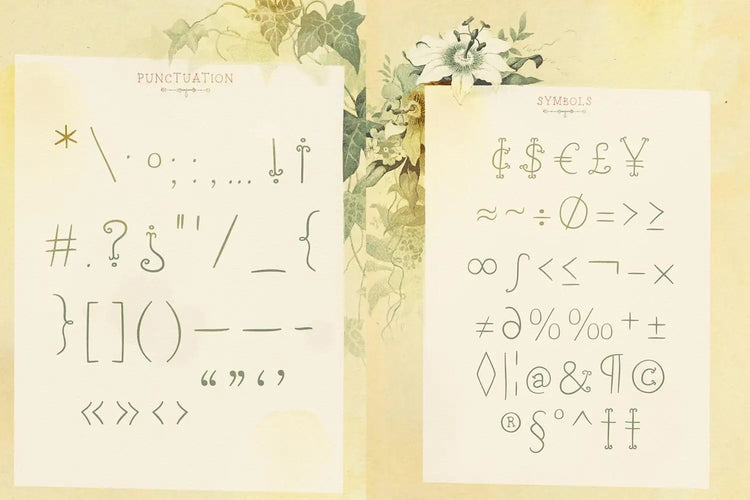 PUNCTUATION
* \ · ○ ; : , … ! ¡
# . ? ¿ " ' / _ {
} [ ] ( ) — – -
“ ” ‘ ’
« » ‹ ›
SYMBOLS
¢ $ € £ ¥
≈ ~ ÷ ∅ = > ≥
∞ ∫ < ≤ ¬ − ×
≠ ∂ % ‰ + ±
◊ | ¦ @ & ¶ ©
® § ° ^ † ‡